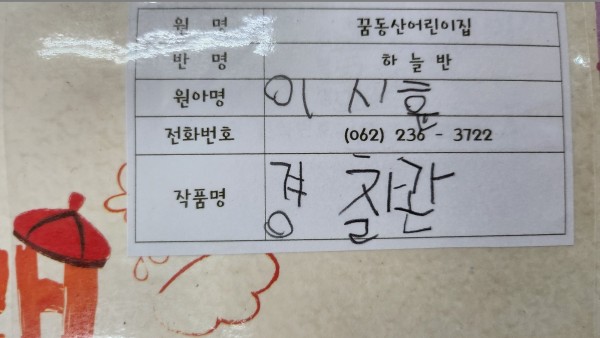 원 명 꿈동산어린이집
반 명 하늘반
원아명 이시훈
전화번호 (062) 236 - 3722
작품명 경찰관